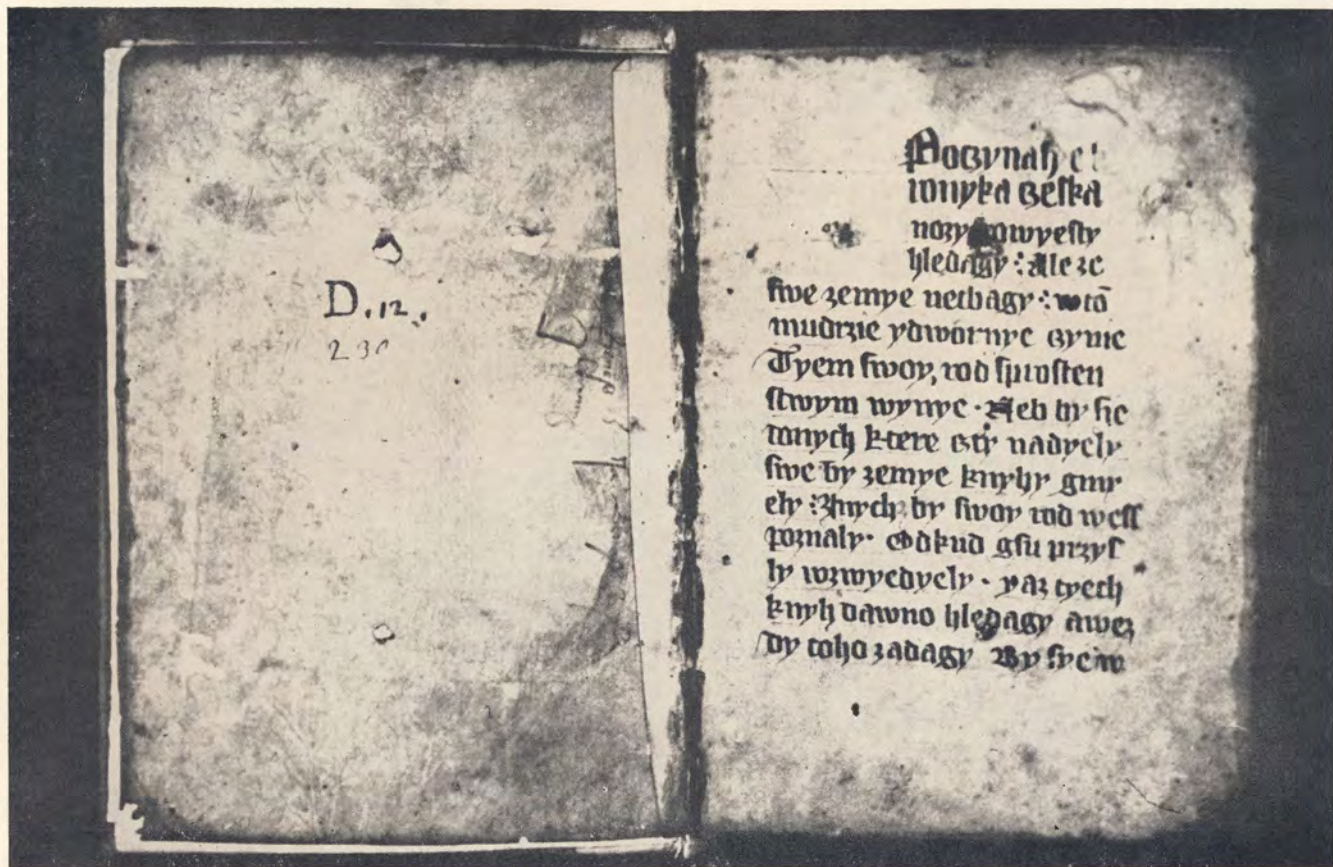 D. 12.
230
Poczynah
ronyka czeska
nozy powyesty
hledagy : Ale ze
swe zemye netbagy : w tō
mudrzie ydwornye czynie
Tyem swoy, rod sprosten
stwym wynye · Neb by sie
tonych ktere czti nadyely
swe by zemye knyhy gmy
ely : Znych by swoy rod wess
poznaly · Odkud gsu przys
ly wzwyedyely · yaz tyech
knyh dawno hledagy awez
dy toho zadagy By sye w